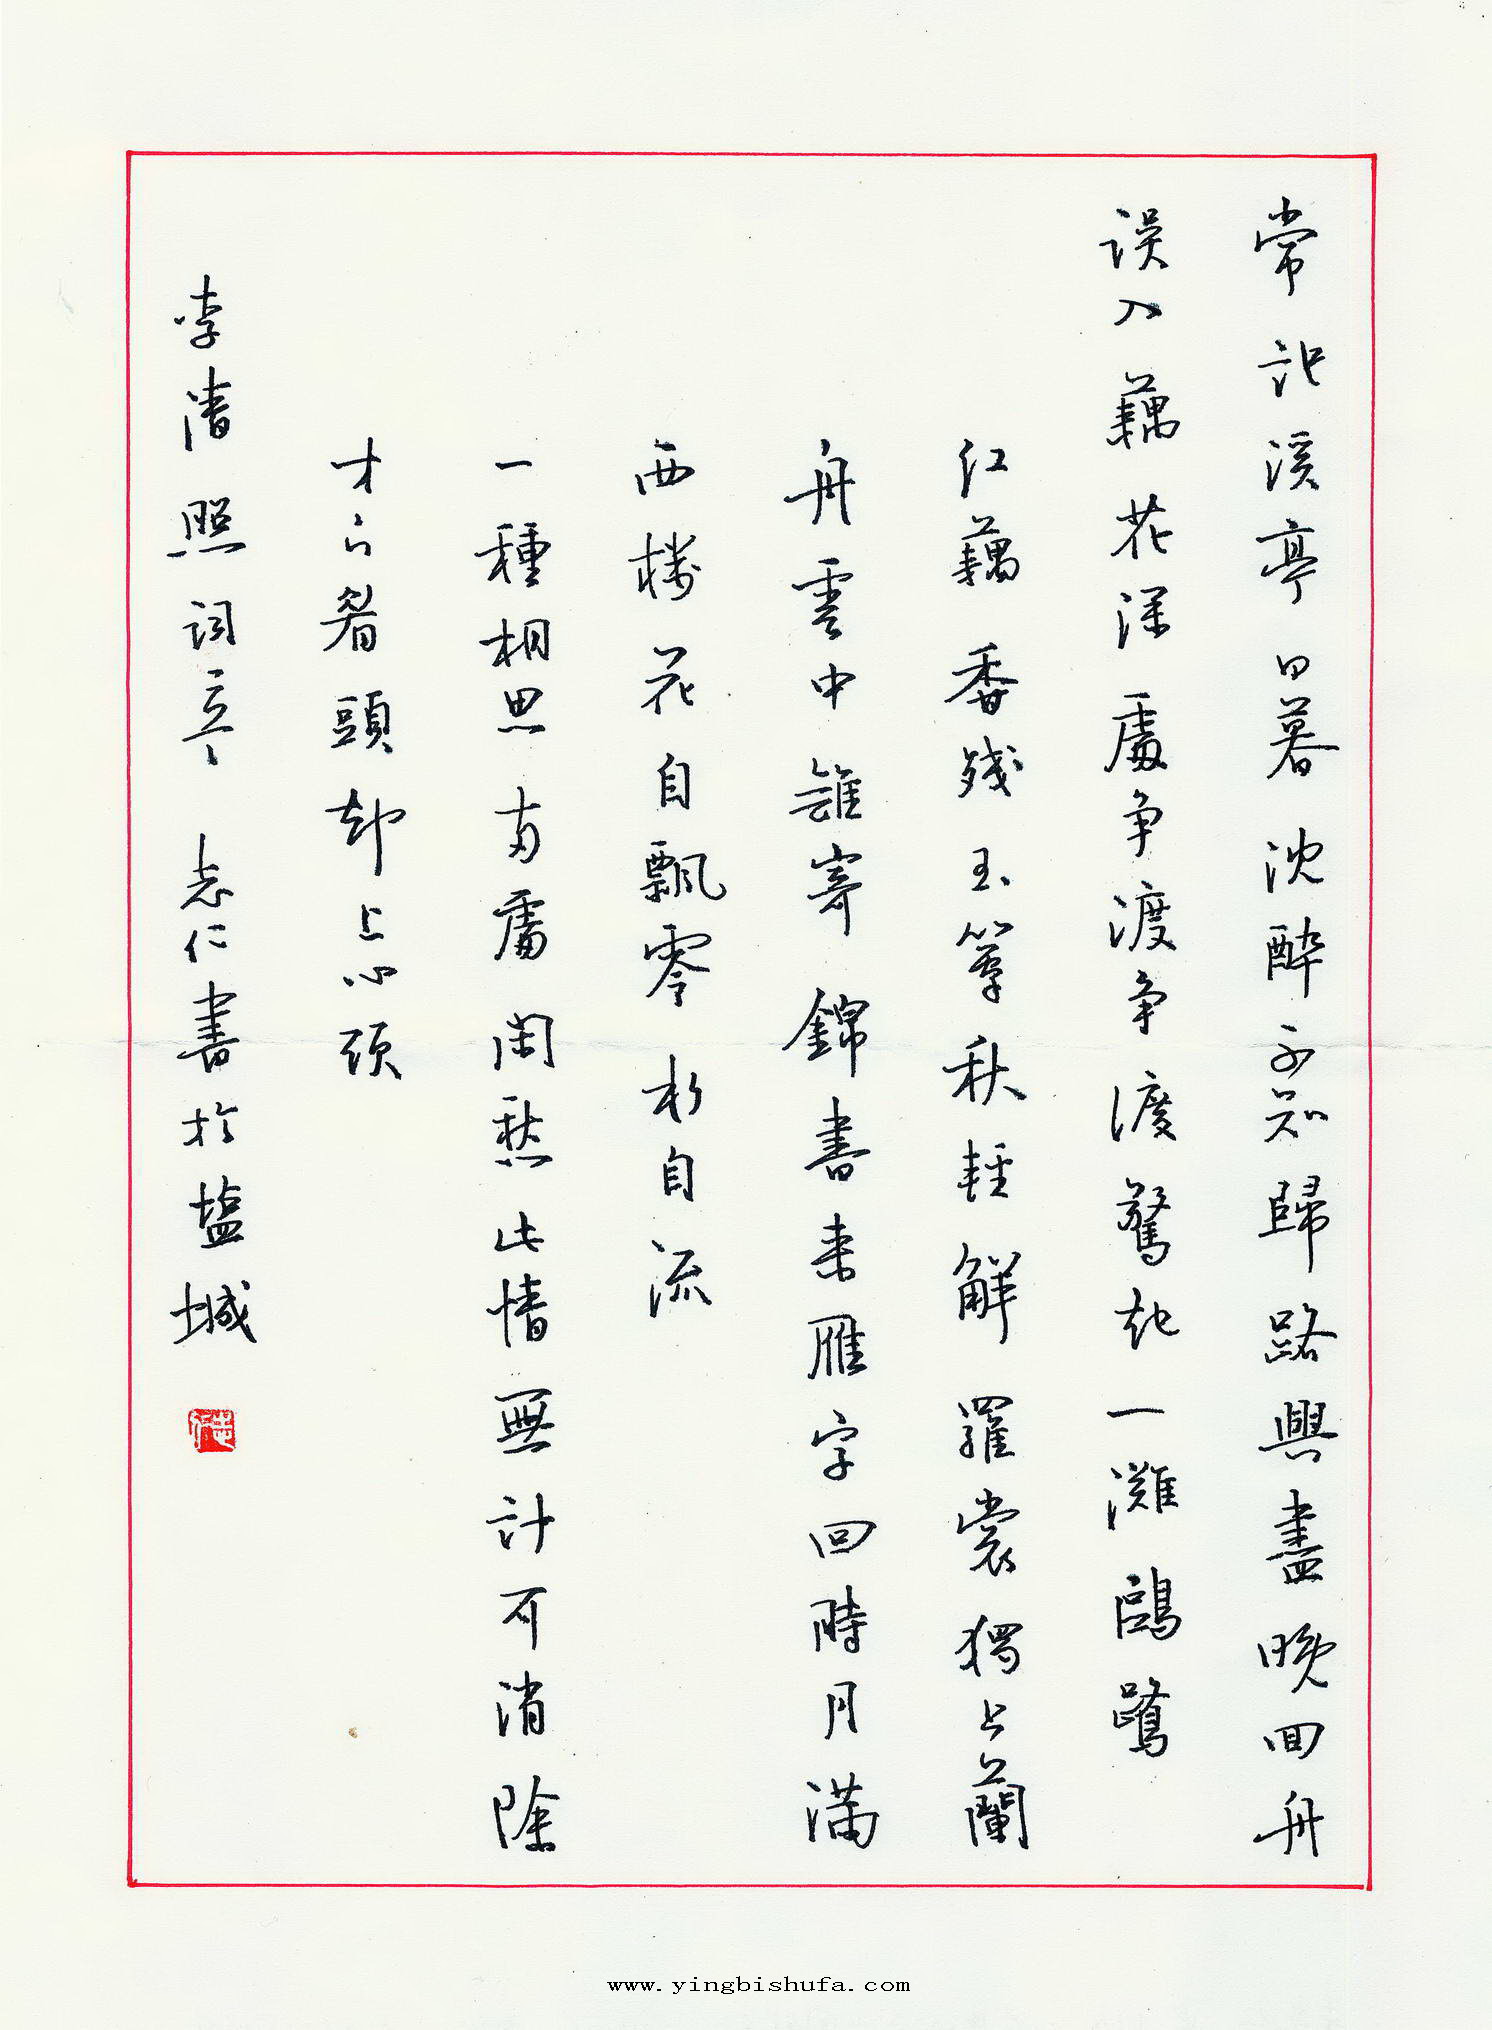 常記溪亭日暮沈醉不知歸路興盡晚回舟
误入藕花深處争渡争渡驚起一灘鷗鷺
红藕香残玉簟秋輕解羅裳獨上蘭
舟雲中誰寄錦書来雁字回時月满
西楼花自飄零水自流
一種相思兩處閑愁此情無計可消除
才下眉頭却上心頭
李清照詞 志仁書於塩城
志仁
www.yingbishufa.com